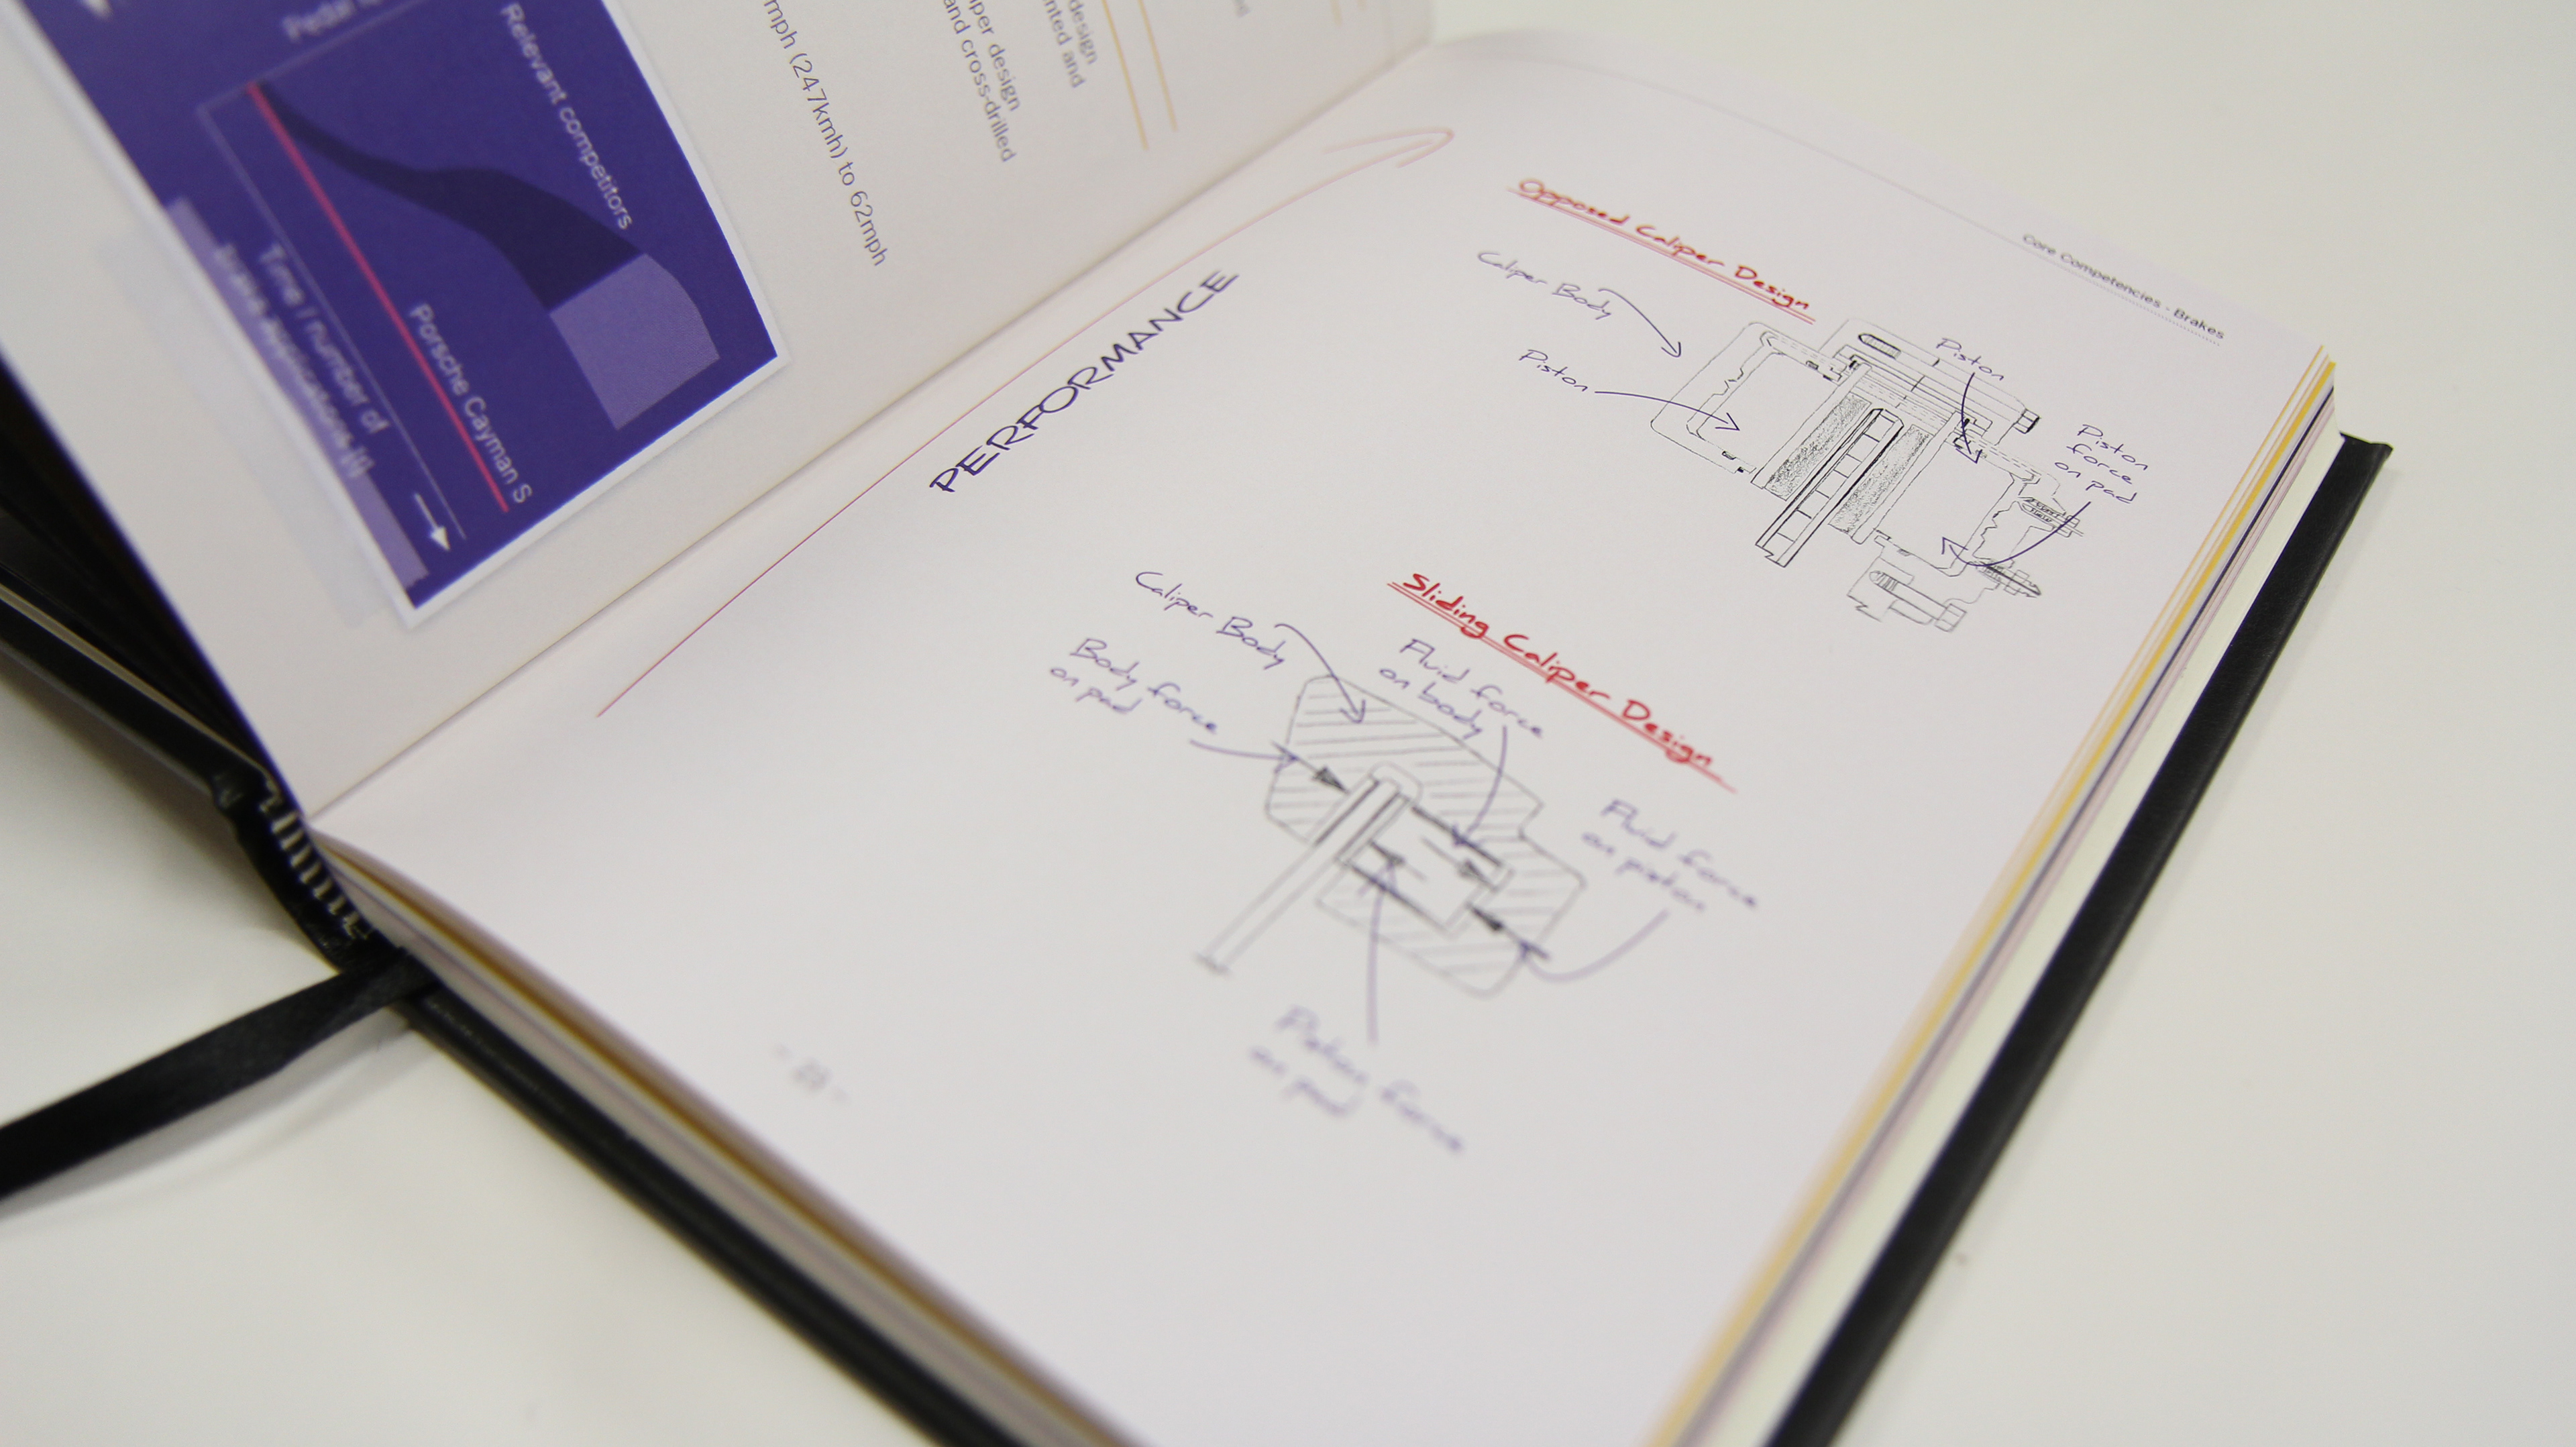 Relevant competitors
Porsche Cayman S
Time / number of
brake applications (t)
mph (247kmh) to 62mph
and cross-drilled
design
design
and
Core Competencies - Brakes
PERFORMANCE
Opposed Caliper Design
Caliper Body
Piston
Piston
Piston
force
on pad
Sliding Caliper Design
Caliper Body
Body force
on pad
Fluid force
on body
Fluid force
on piston
Piston force
on pad